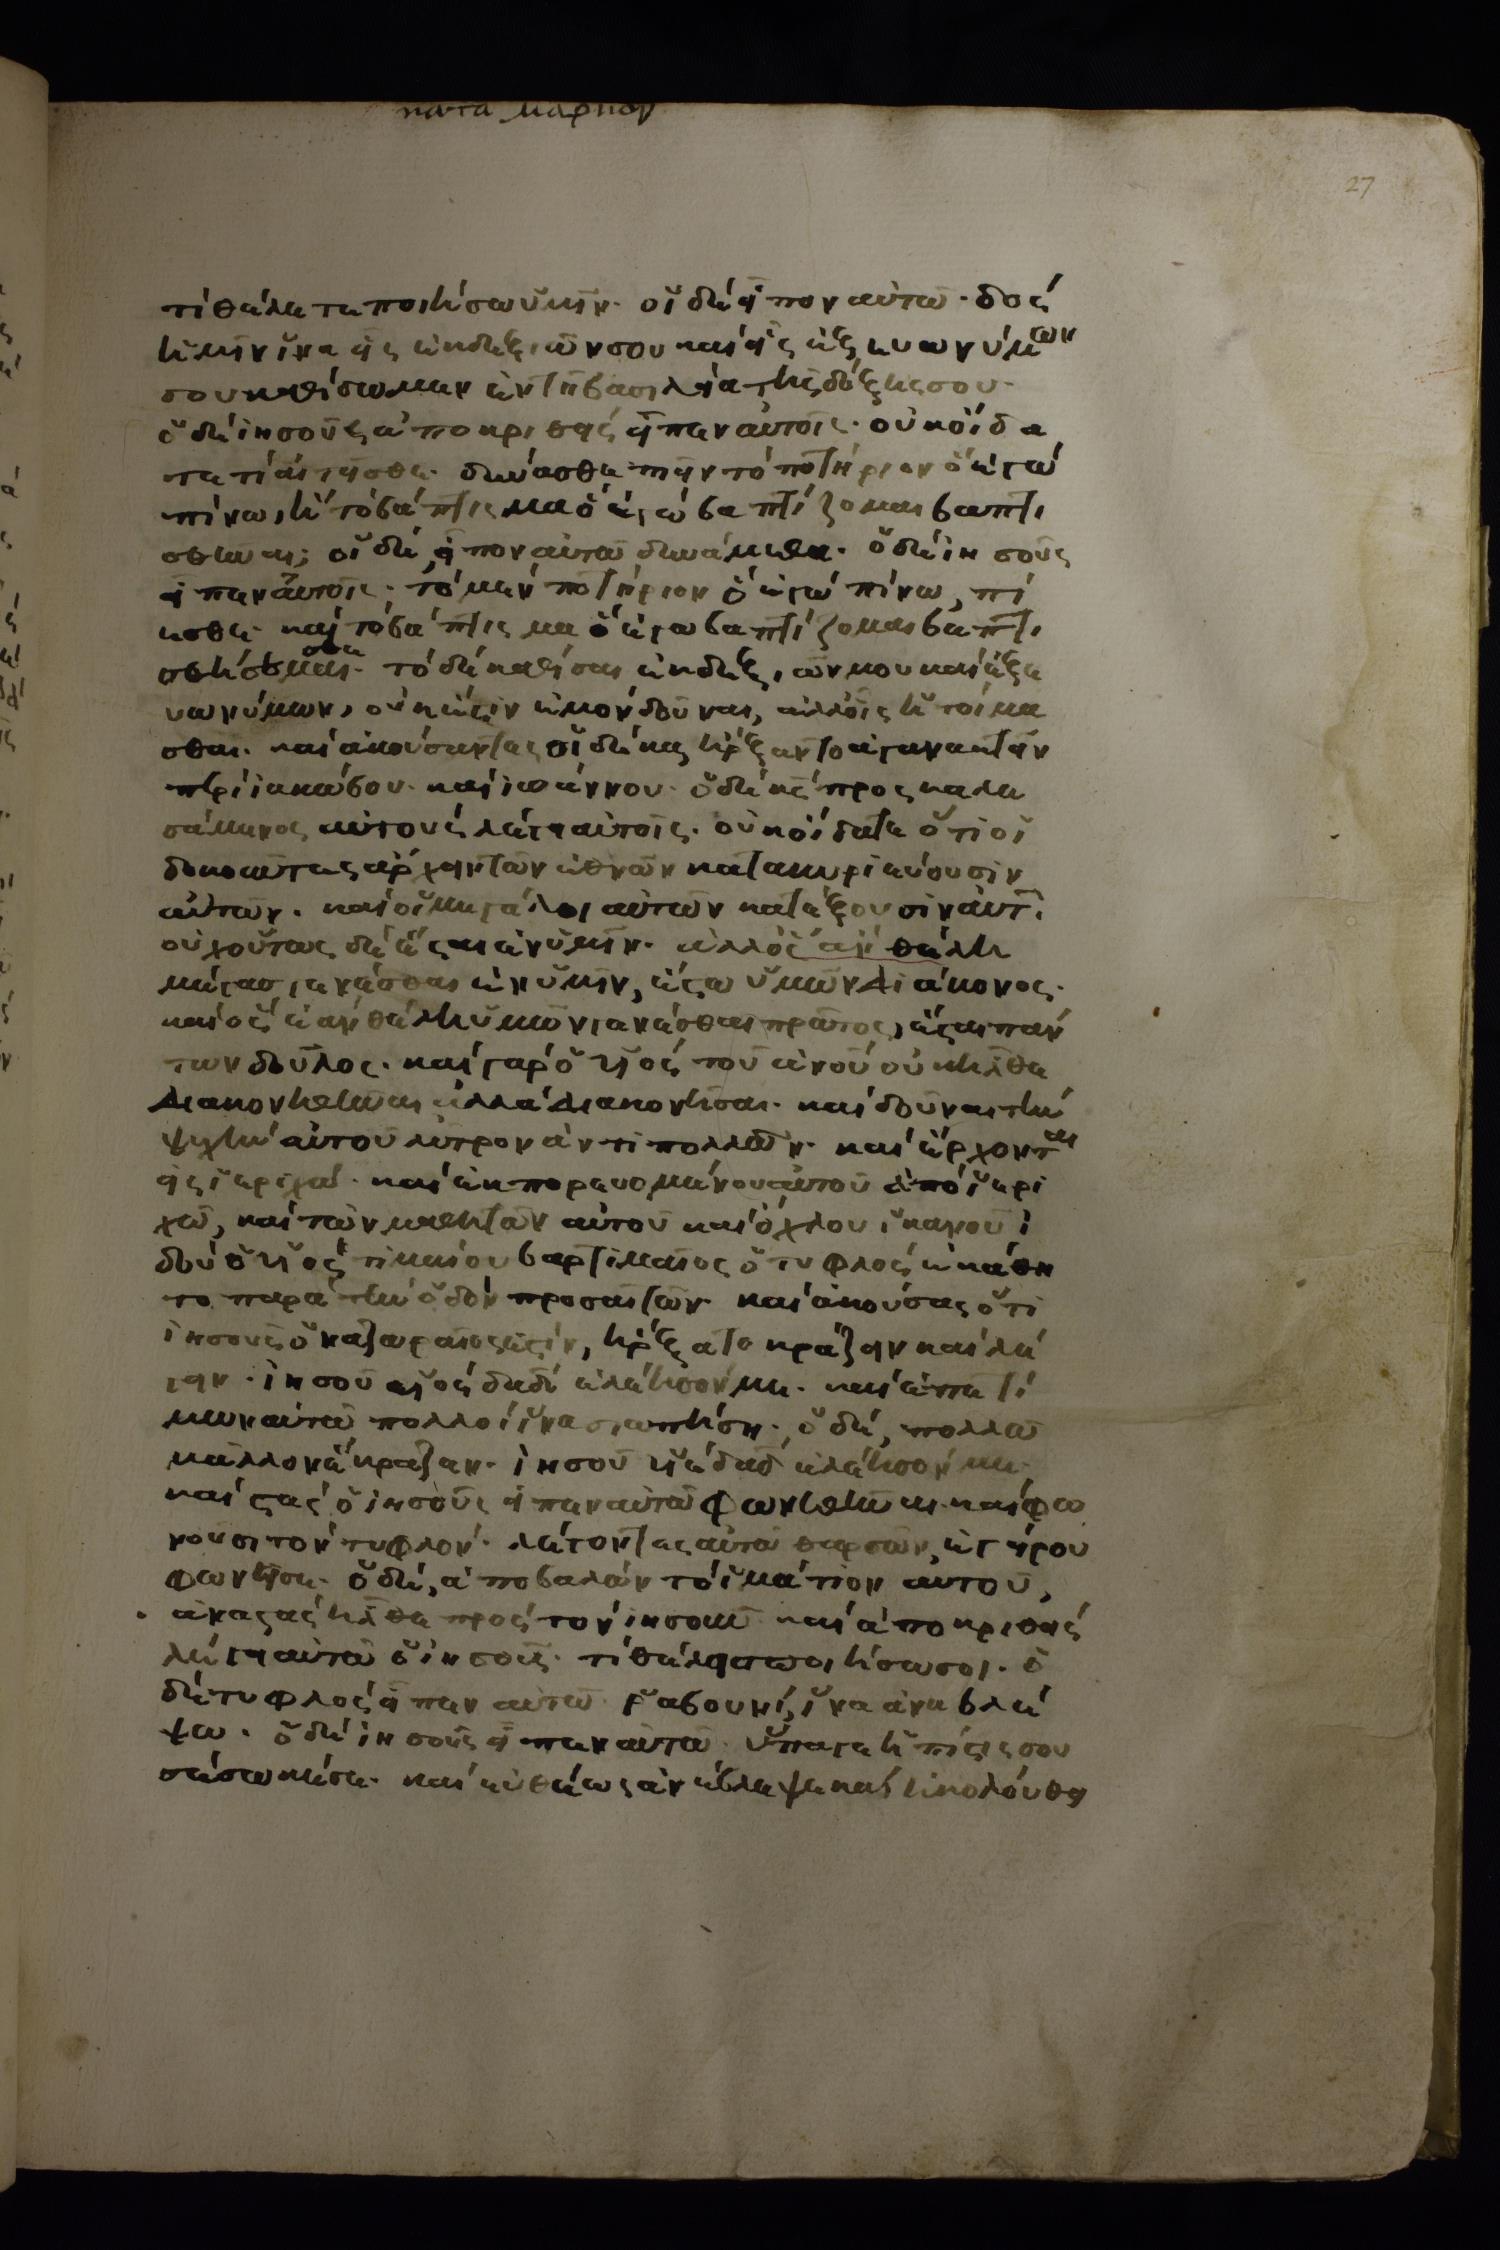 κατα μαρκον
27
τί θέλετε ποιήσω ὑμῖν· οἱ δὲ εἶπον αὐτῶ· δὸς
ἡμῖν ἵνα εἷς ἐκ δεξιῶν σου καὶ εἷς ἐξ εὐωνύμων
σου καθίσωμεν ἐν τῆ βασιλεία τῆς δόξης σου·
ὁ δὲ ἰησοῦς ἀποκριθεὶς εἶπεν αὐτοῖς· οὐκ οἴδα
τε τί αἰτεῖσθε· δύνασθε πιεῖν τὸ ποτήριον ὃ ἐγὼ
πίνω, ἢ τὸ βάπτισμα ὃ ἐγὼ βαπτίζομαι βαπτι
σθῆναι; οἱ δὲ εἶπον αὐτῶ δυνάμεθα· ὁ δὲ ἰησοῦς
εἶπεν αὐτοῖς· τὸ μὲν ποτήριον ὃ ἐγὼ πίνω, πί
εσθε· καὶ τὸ βάπτισμα ὃ ἐγὼ βαπτίζομαι βαπτι
σθήσεσθε· τὸ δὲ καθίσαι ἐκ δεξιῶν μου καὶ ἐξ ε
υωνύμων, οὐκ ἔστιν ἐμὸν δοῦναι, ἀλλ' οἷς ἡτοίμα
σθαι· καὶ ἀκούσαντες οἱ δέκα ἤρξαντο ἀγανακτεῖν
περὶ ἰακώβου· καὶ ἰωάννου· ὁ δὲ ις προσκαλε
σάμενος αὐτοὺς λέγει αὐτοῖς· οὐκ οἴδατε ὅτι οἱ
δοκοῦντες ἄρχειν τῶν ἐθνῶν κατακυριεύουσιν
αὐτῶν· καὶ οἱ μεγάλοι αὐτῶν κατεξουσιν αὐτ·
οὐχ οὕτως δὲ ἔσται ἐν ὑμῖν· ἀλλ' ὃς ἐὰν θέλη
μέγας γενέσθαι ἐν ὑμῖν, ἔστω ὑμῶν διάκονος·
καὶ ὃς ἐὰν θέλη ὑμῶν γενέσθαι πρῶτος, ἔσται πάν
των δοῦλος· καὶ γὰρ ὁ υἱὸς τοῦ ἀνοῦ οὐκ ἦλθε
διακονηθῆναι ἀλλὰ διακονῆσαι· καὶ δοῦναι τὴν
ψυχὴν αὐτοῦ λύτρον ἀντὶ πολλῶν· καὶ ἔρχονται
εἰς ἱεριχώ· καὶ ἐκπορευομένου αὐτοῦ ἀπὸ ἱερι
χῶ, καὶ τῶν μαθητῶν αὐτοῦ καὶ ὄχλου ἱκανοῦ ἰ
δοὺ ὁ υἱὸς τιμαίου βαρτίμαῖος ὁ τυφλὸς ἐκάθη
το παρὰ τὴν ὁδὸν προσαιτῶν· καὶ ἀκούσας ὅτι
ἰησοῦς ὁ ναζωραῖος ἐστίν, ἤρξατο κράζειν καὶ λέ
γειν· ἰησοῦ υἱὸς δαδ ἐλέησόν με· καὶ ἐπετί
μων αὐτῶ πολλοὶ ἵνα σιωπήση· ὁ δὲ, πολλῶ
μᾶλλον ἔκραζεν· ἰησοῦ υἱὲ δαδ ἐλέησόν με·
καὶ στὰς ὁ ἰησοῦς εἶπεν αὐτῶ φωνηθῆναι· καὶ φω
νοῦσι τὸν τυφλὸν· λέγοντες αὐτῶ θαρσῶν, ἐγείρου
φωνεῖ σε· ὁ δὲ, ἀποβαλὼν τὸ ἱμάτιον αὐτοῦ,
ἀναστὰς ἦλθε πρὸς τὸν ἰησοῦν καὶ ἀποκριθεὶς
λέγει αὐτῶ ὁ ἰησοῦς· τί θέλεις ποιήσω σοι· ὁ
δὲ τυφλὸς εἶπεν αὐτῶ· ῥαβουνί, ἵνα ἀναβλέ
ψω· ὁ δὲ ἰησοῦς εἶπεν αὐτῶ· ὕπαγε ἡ πίστις σου
σέσωκέ σε· καὶ εὐθέως ἀνέβλεψε καὶ ἠκολούθει